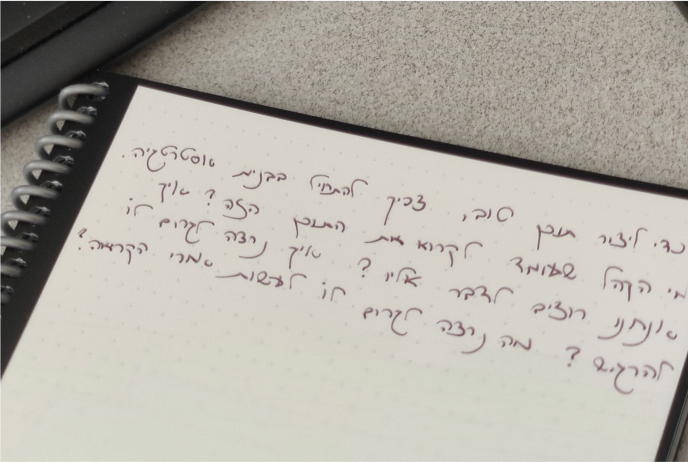 כדי ליצור תוכן טוב, צריך להתחיל בבנית אסטרטגיה.
מי הקהל שעומד לקרוא את התוכן הזה? איך
אנחנו רוצים לדבר אליו? איך נרצה לגרום לו
להרגיש? מה נרצה לגרום לו לעשות אחרי הקריאה?